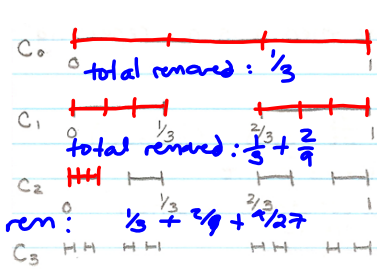 C₀
0 1
total removed: 1/3
C₁
0 1/3 2/3 1
total removed: 1/3 + 2/9
C₂
0 1/3 2/3 1
rem: 1/3 + 2/9 + 4/27
C₃